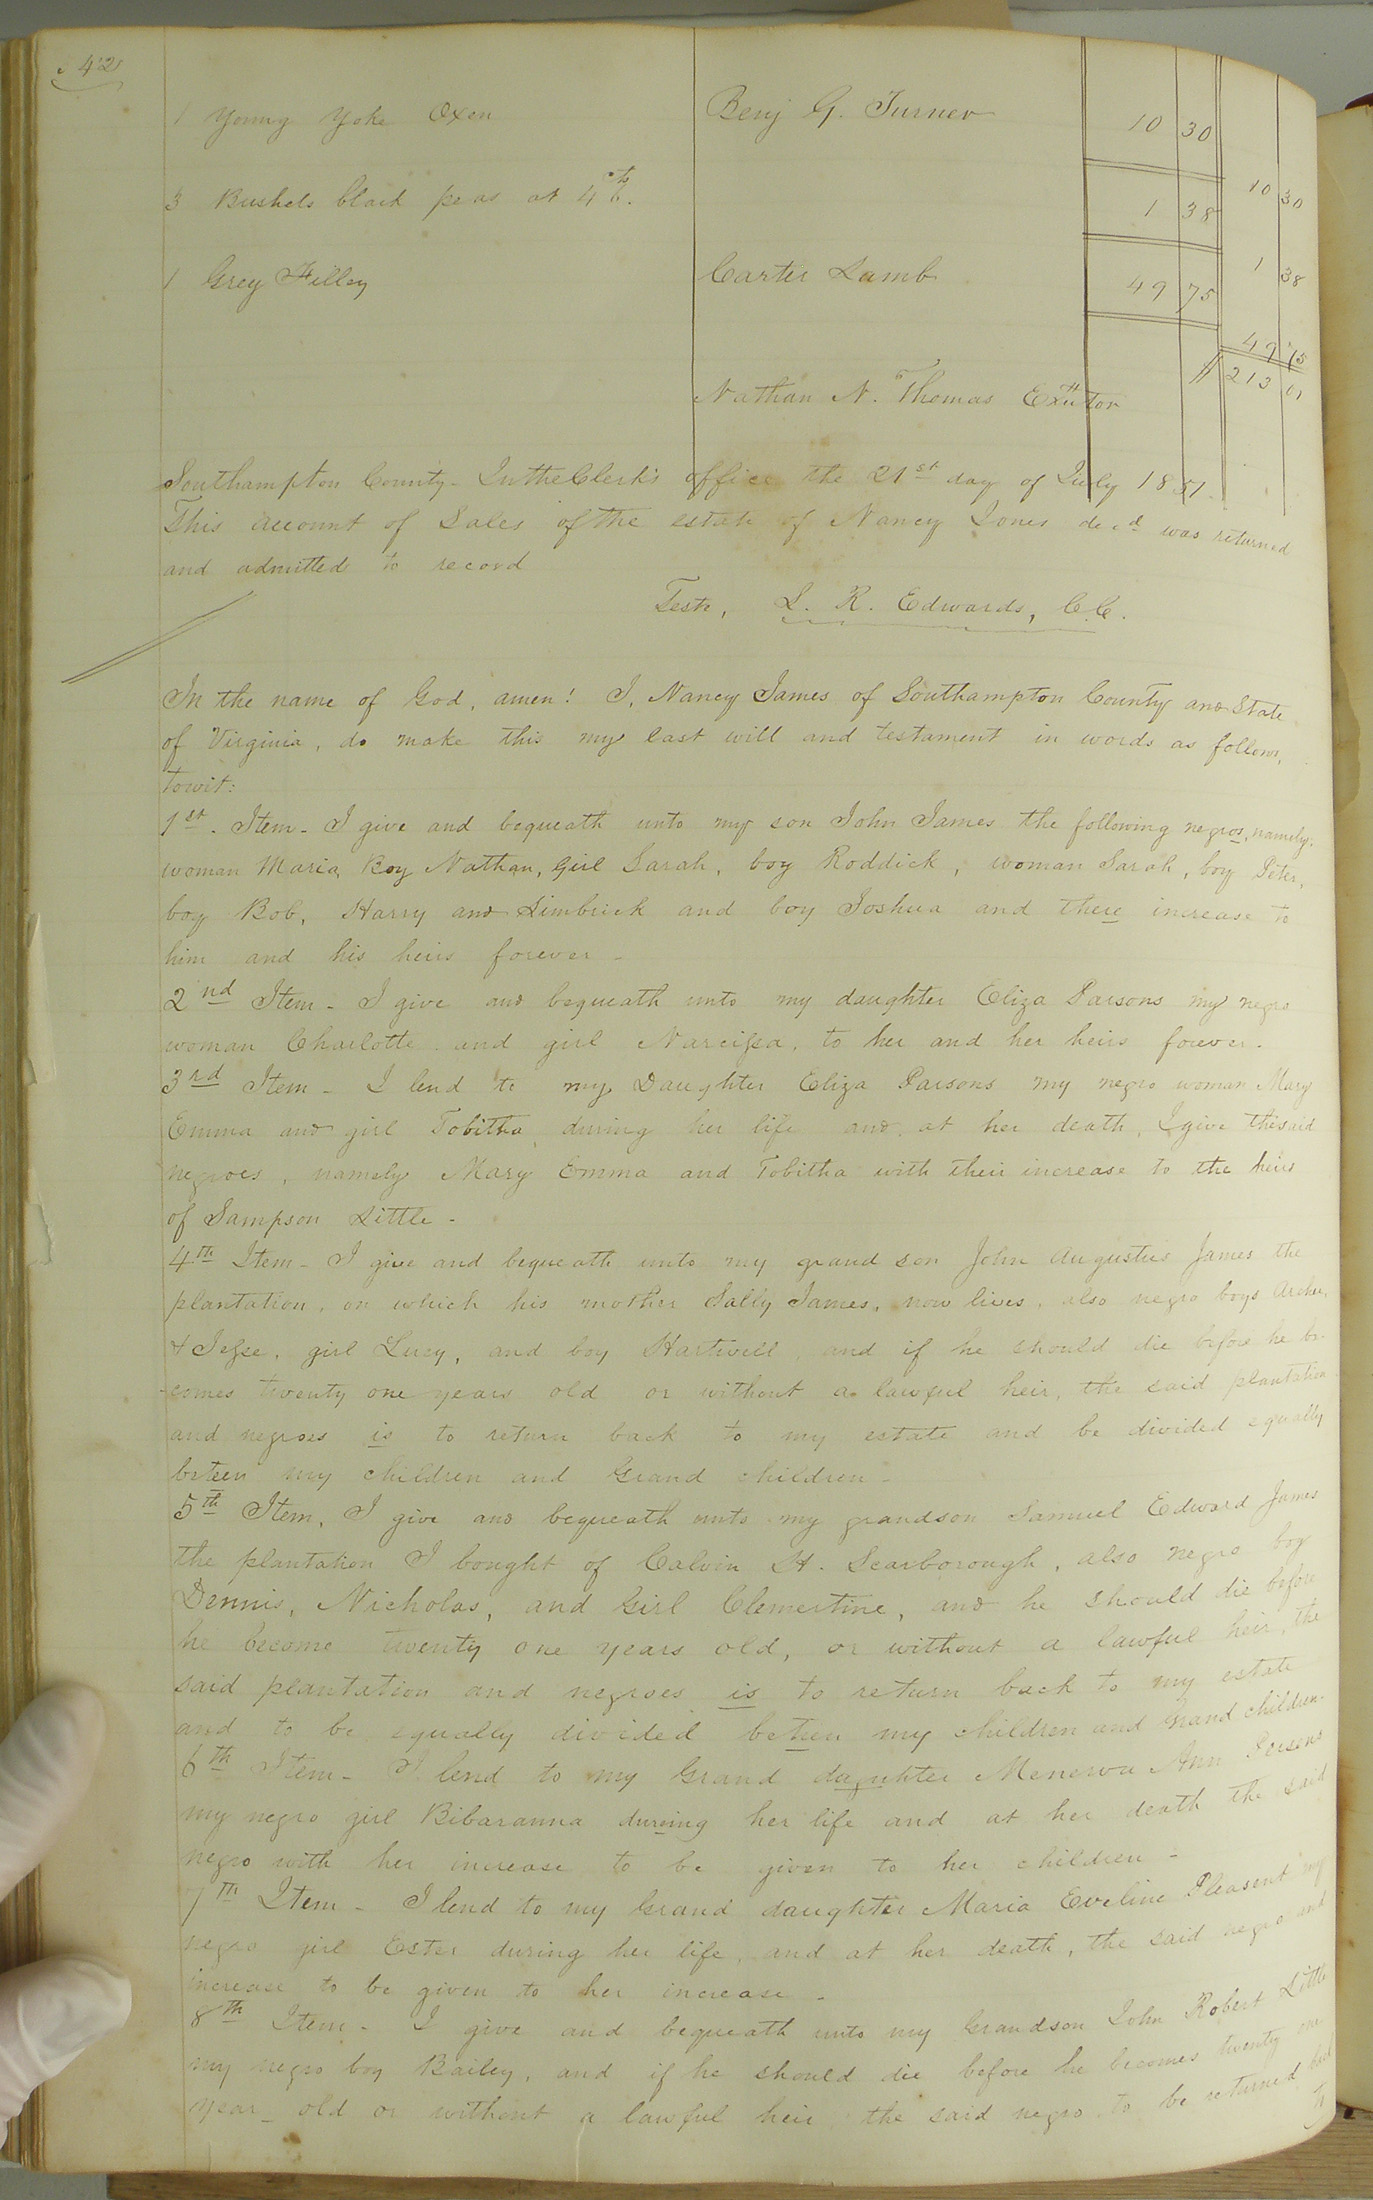 42
1 Young Yoke Oxen Benj G. Turner 10 30
10 30
3 Bushels black peas at 1 38
1 38
1 Grey Filley Carter Lamb 49 75
49 75
Nathan N. Thomas Exutor $ 213 01
Southampton County - In the Clerk's office the 21st day of July 1851.
This account of Sales of the estate of Nancy Jones decd was returned
and admitted to record
Teste, L. R. Edwards, C.C.
In the name of God, amen! I, Nancy James of Southampton County and State
of Virginia, do make this my last will and testament in words as follows,
towit:
1st. Item - I give and bequeath unto my son John James the following negros, namely:
woman Maria, Boy Nathan, Girl Sarah, boy Roddick, woman Sarah, boy Peter,
boy Bob, Harry and Limbrick and boy Joshua and there increase to
him and his heirs forever -
2nd Item - I give and bequeath unto my daughter Eliza Parsons my negro
woman Charlotte and girl Narcissa, to her and her heirs forever.
3rd Item - I lend to my Daughter Eliza Parsons my negro woman Mary
Emma and girl Tobitha during her life and at her death, I give the said
negroes, namely Mary Emma and Tobitha with their increase to the heirs
of Sampson Little -
4th Item - I give and bequeath unto my grand son John Augustus James the
plantation, on which his mother Sally James, now lives, also negro boys Archer,
& Jesse, girl Lucy, and boy Hartwell, and if he should die before he be-
-comes twenty one years old or without a lawful heir, the said plantation
and negroes is to return back to my estate and be divided equally
beteen my children and Grand children -
5th Item, I give and bequeath unto my grandson Samuel Edward James
the plantation I bought of Calvin H. Scarborough, also negro boy
Dennis, Nicholas, and Girl Clementine, and he should die before
he become twenty one years old, or without a lawful heir, the
said plantation and negroes is to return back to my estate
and to be equally divided beteen my children and Grand children.
6th Item - I lend to my Grand daughter Menerva Ann Persons
my negro girl Bibaranna during her life and at her death the said
negro with her increase to be given to her children -
7th Item - I lend to my Grand daughter Maria Eveline Pleasent my
negro girl Ester during her life, and at her death, the said negro and
increase to be given to her increase -
8th Item - I give and bequeath unto my Grandson John Robert Little
my negro boy Bailey, and if he should die before he becomes twenty one
year old or without a lawful heir the said negro to be returned back